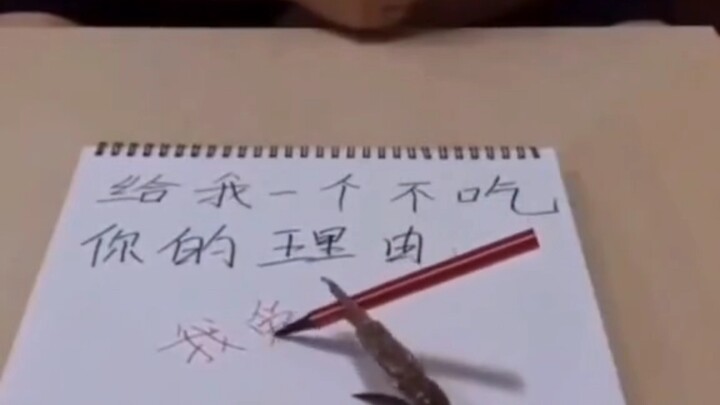 给我一个不吃
你的理由
我